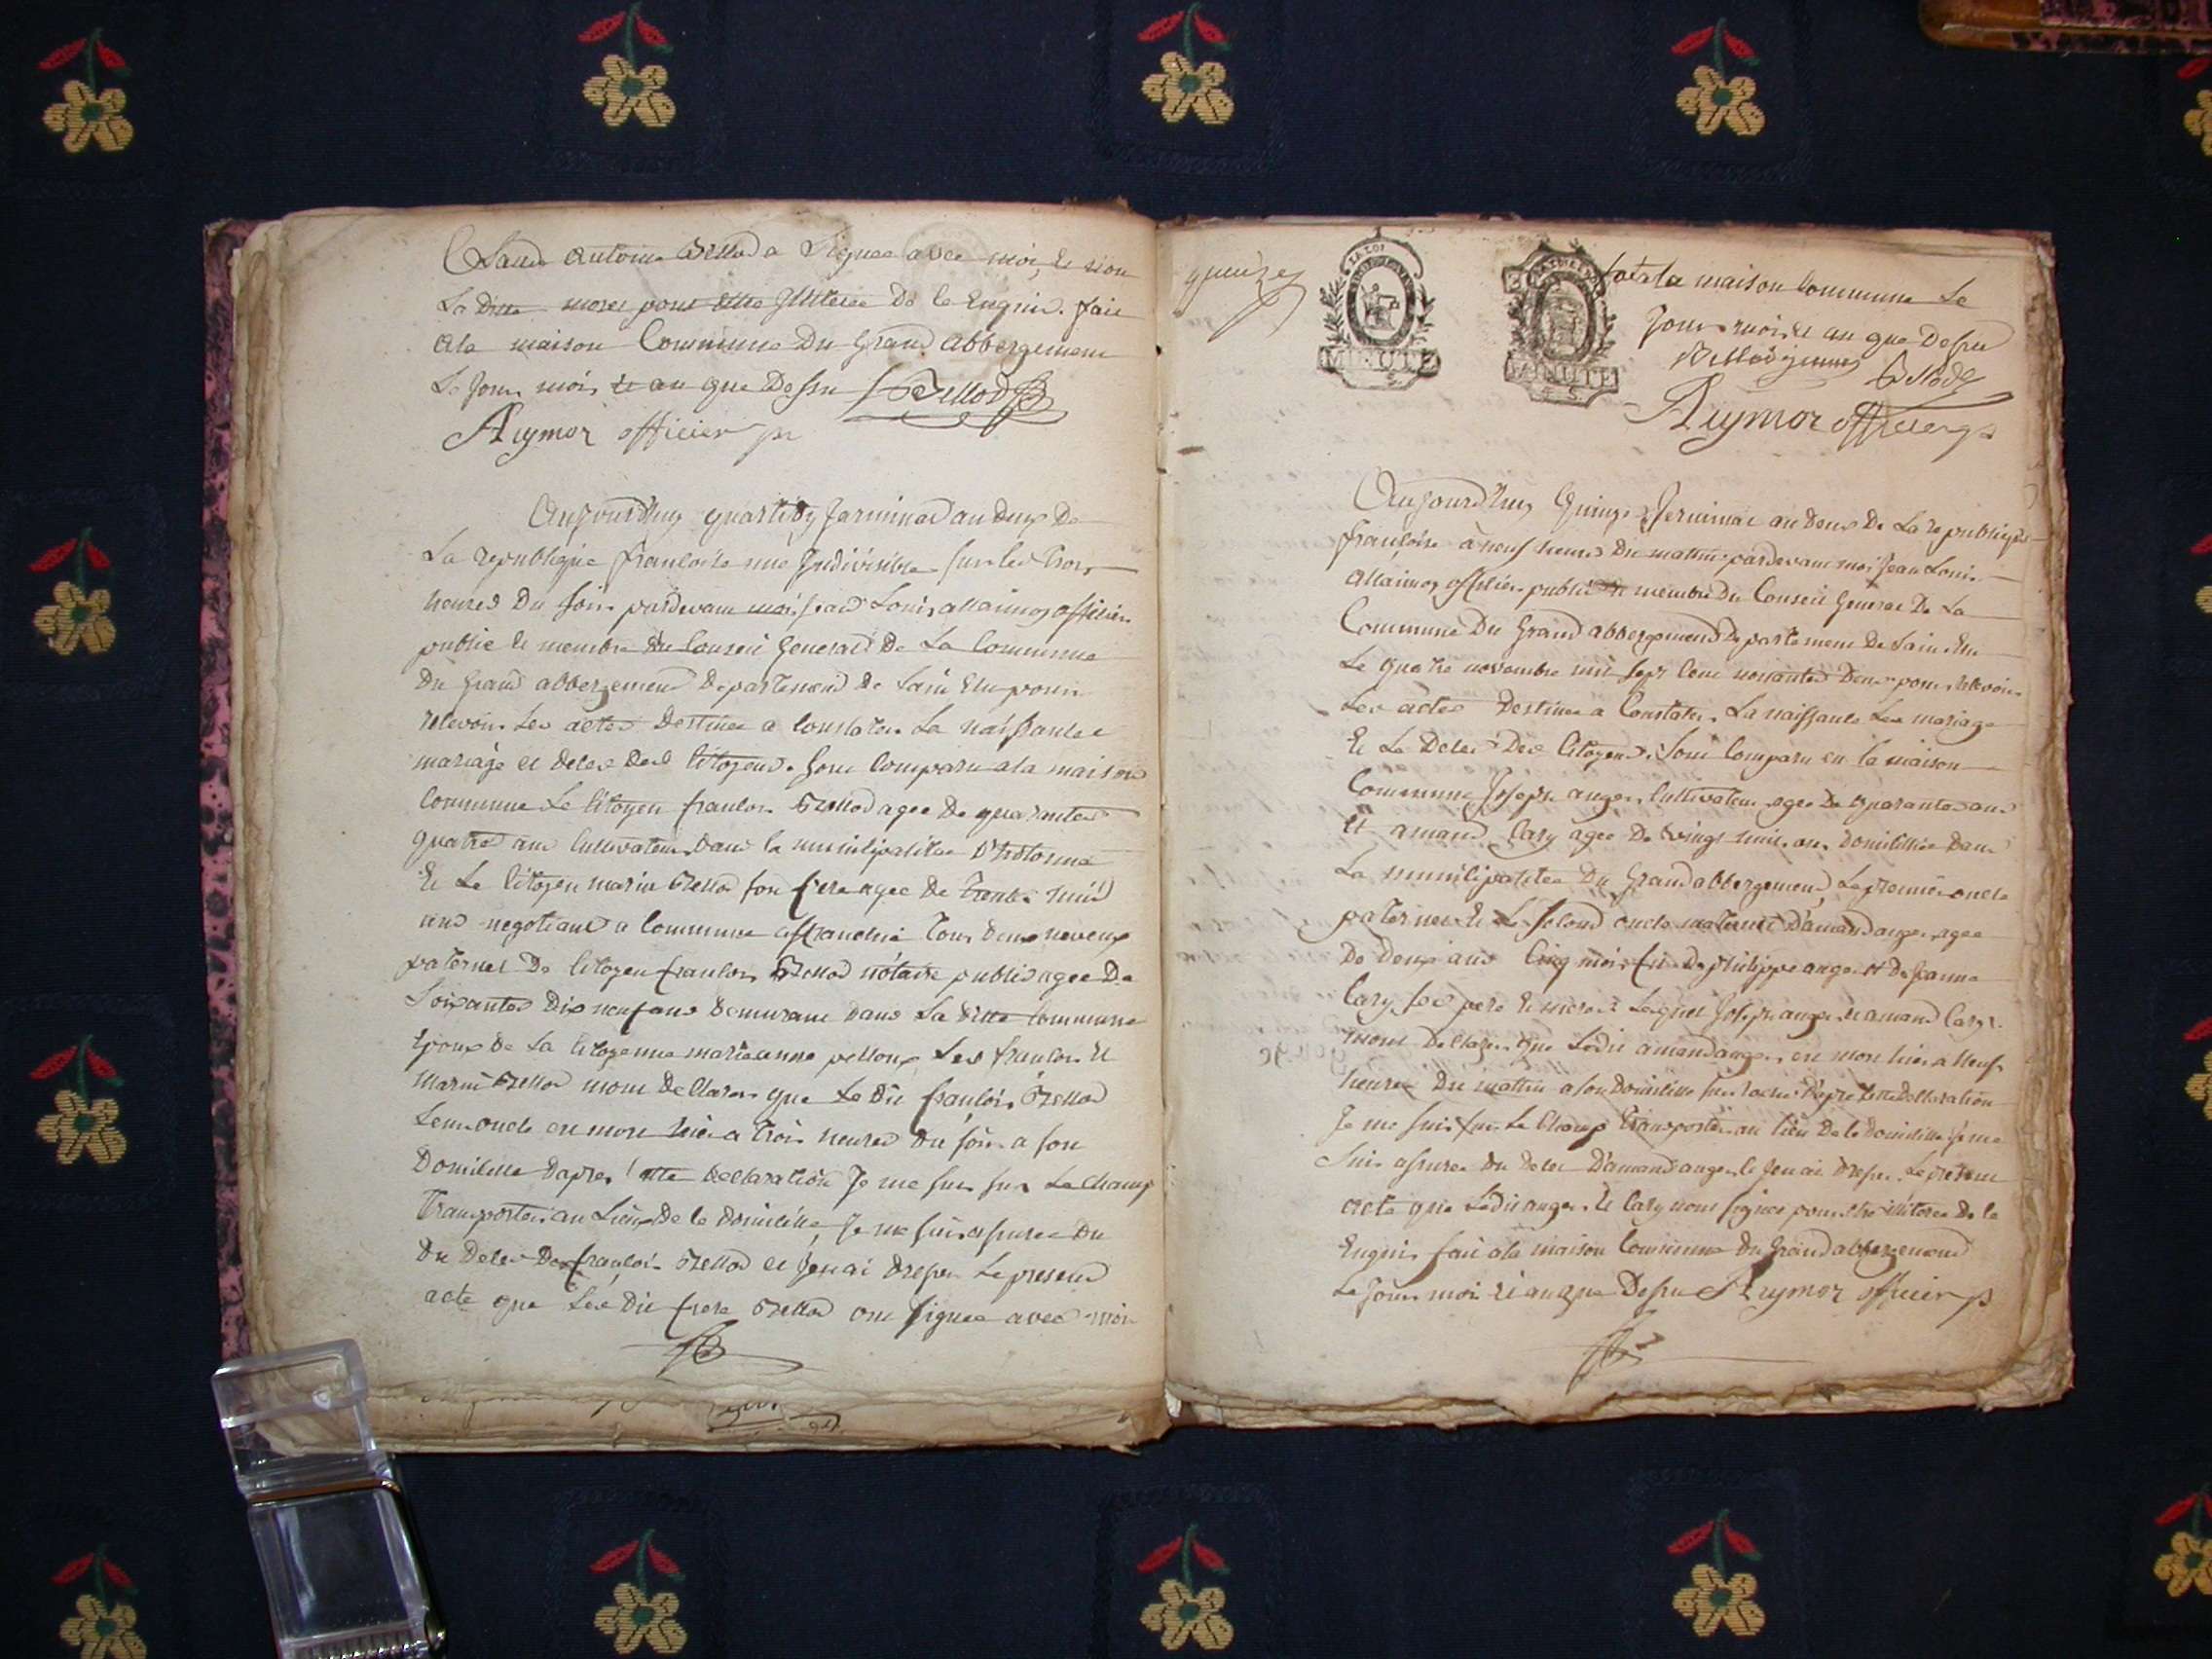 Claude Antoine Brillod a Signee avec moi, et non
La ditte mores pour etre Illiteree De le Enquis. fait
Ala maison Commune Du Grand abbergement
Le Jour mois et an que Dessu Brillod
Aymoz officier p
Aujourdhuy quartidy Jerminal an deux De
La republique francoise une Indivisible sur les trois
heures Du soir pardevant moi jean Louis allaimoz officier
public et membre du Conseil General De La Commune
Du Grand abbergement Departement De Lain Elu pour
recevoir Les actes Destinee a Constater La naissance
mariage et deces des Citoyens. sont Comparu ala maison
Commune Le Citoyen francois Brillod agee De quarantes
quatre ans Cultivateur dans la municipalitee D'hotonne
Et Le Citoyen marin Brillod son frere agee De trente huit
ans negotiant a Commune affranchie tous deux neveux
paternel De Citoyen francois Brillod notaire public agee De
Soixantes Dix neuf ans Demurant dans La ditte Commune
Epoux de La Citoyenne marieanne Les francois et
Marin Brillod mont Dellarer que Le dit francois Brillod
Leur oncle et mort hier a trois heures Du soir a son
Domicille Dapres Cette Declaration Je me suis sur Le Champ
Transporter au Lieux De le Domicille, Je me suis assuree Du
Du Deces De francois Brillod et Jenai Dresser Le present
acte que Les dit frere Brillod ont signee avec moi
quinze
LA LOI
MINUTE
MINUTE
fait a la maison Commune Le
Jour mois et an que Dessu
Brillod jeune Brillod
Aymoz officier p
Aujourdhuy Quinze Jerminal an deux De La republique
francoise a neuf heures Du mattin pardevant moi Jean Louis
Allaimoz officier public et membre du Conseil General De La
Commune Du Grand abbergement Departement De Lain Elu
Le quatre novembre mil sept Cent nonantes Deux pour recevoir
Les actes Destinee a Constater La naissance Les mariage
Et Le Deces Des Citoyens. sont Comparu en la maison
Commune Joseph anger Cultivateur agee De quarantes ans
Et amand Cary agee De vingt huit ans Domicilliee Dans
La municipalitee Du Grand abbergement, Le premier oncle
paternel Et Le second oncle maternel D'amand anger agee
De Deux ans Cinq mois fils De philippe anger et De Jeanne
Cary ses pere et mere. Lequel Joseph anger et amand Cary
mont Dellarer que Ledit amand anger et mort hier a neuf
heures Du mattin a son Domicille D'apres Cette Dellaration
Je me suis sur Le Champ transporter au lieu De le Domicille Je me
suis assuree du Deces D'amand anger et Jenai Dresser Le present
acte que Ledit anger et Cary nont signee pour etre illiteree De le
Enquis fait ala maison Commune Du Grand abbergement
Le Jour mois et an que Dessu Aymoz officier p